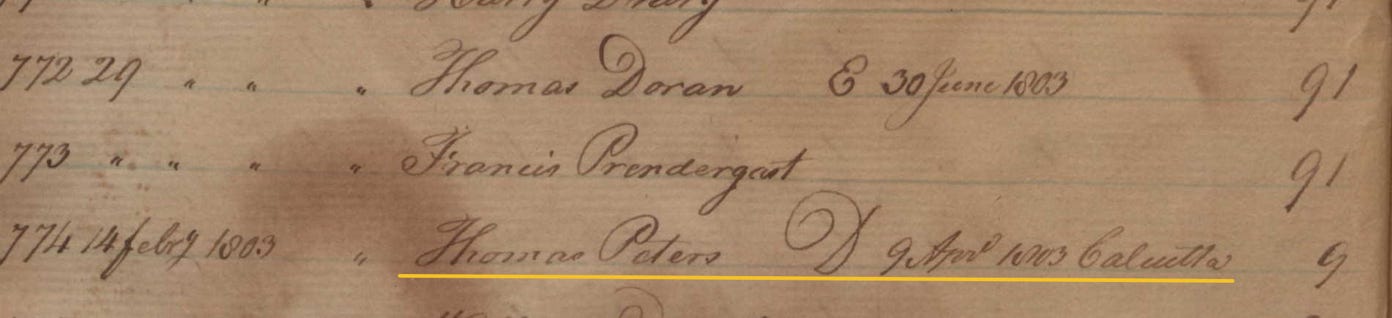 Harry Drury 91
772 29 " " " Thomas Doran E 30 June 1803 91
773 " " " " Francis Prendergast 91
774 14 febry 1803 " Thomas Peters D 9 Aprl 1803 Calcutta 9